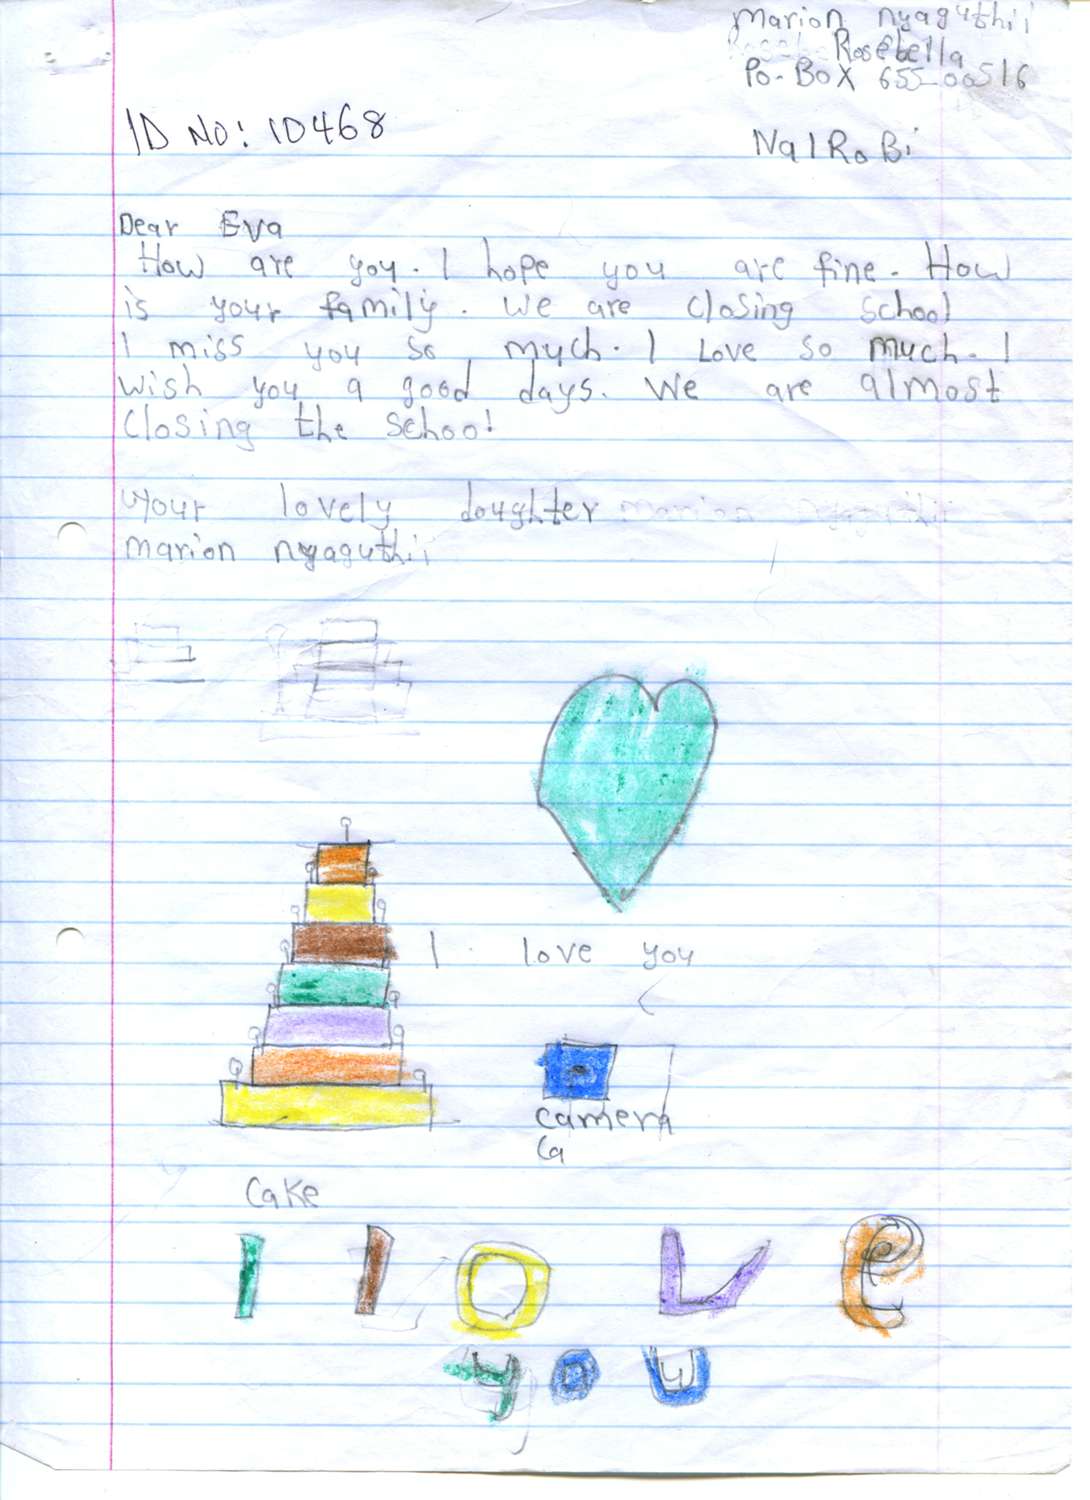 Marion nyaguthii
Rosebella
Po-Box 655-00516
ID NO: 10468
NaIRoBi
Dear Eva
How are you. I hope you are fine. How
is your family. We are closing school
I miss you so much. I Love so much. I
wish you a good days. We are almost
closing the school
your lovely doughter marion nyaguthii
marion nyaguthii
I love you
camera
Ca
Cake
I love
you